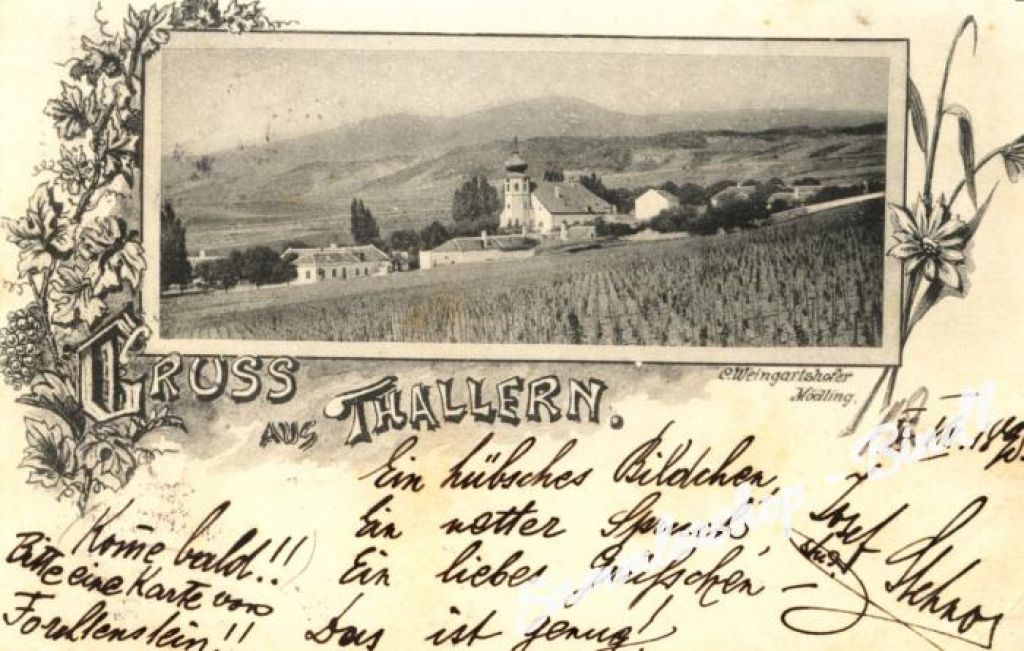 GRUSS
AUS THALLERN.
C. Weingartshofer
Mödling.
Ein hübsches Bildchen,
Ein netter Spruch
Ein liebes Grüßchen –
Das ist genug!
(Kom̄e bald!!)
Bitte eine Karte von
Forchtenstein!!
Josef